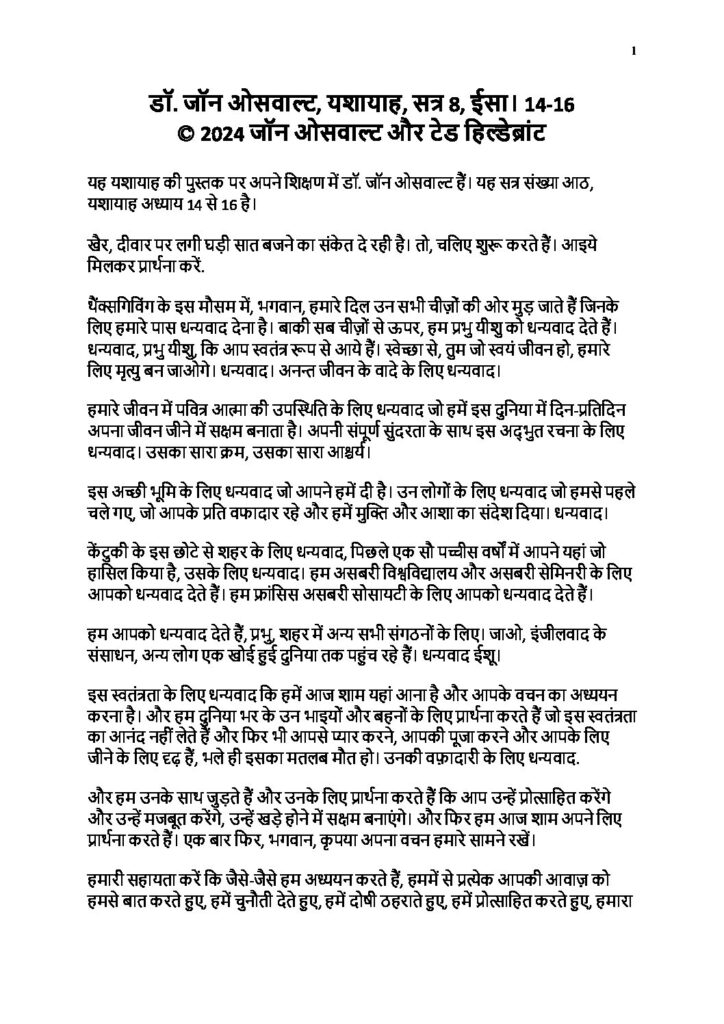 1
डॉ. जॉन ओसवाल्ट, यशायाह, सत्र 8, ईसा। 14-16
© 2024 जॉन ओसवाल्ट और टेड हिल्डेब्रांट
यह यशायाह की पुस्तक पर अपने शिक्षण में डॉ. जॉन ओसवाल्ट हैं। यह सत्र संख्या आठ,
यशायाह अध्याय 14 से 16 है।
खैर, दीवार पर लगी घड़ी सात बजने का संकेत दे रही है। तो, चलिए शुरू करते हैं। आइये
मिलकर प्रार्थना करें.
थैंक्सगिविंग के इस मौसम में, भगवान, हमारे दिल उन सभी चीज़ों की ओर मुड़ जाते हैं जिनके
लिए हमारे पास धन्यवाद देना है। बाकी सब चीज़ों से ऊपर, हम प्रभु यीशु को धन्यवाद देते हैं।
धन्यवाद, प्रभु यीशु, कि आप स्वतंत्र रूप से आये हैं। स्वेच्छा से, तुम जो स्वयं जीवन हो, हमारे
लिए मृत्यु बन जाओगे। धन्यवाद। अनन्त जीवन के वादे के लिए धन्यवाद।
हमारे जीवन में पवित्र आत्मा की उपस्थिति के लिए धन्यवाद जो हमें इस दुनिया में दिन-प्रतिदिन
अपना जीवन जीने में सक्षम बनाता है। अपनी संपूर्ण सुंदरता के साथ इस अद्भुत रचना के लिए
धन्यवाद। उसका सारा क्रम, उसका सारा आश्चर्य।
इस अच्छी भूमि के लिए धन्यवाद जो आपने हमें दी है। उन लोगों के लिए धन्यवाद जो हमसे पहले
चले गए, जो आपके प्रति वफादार रहे और हमें मुक्ति और आशा का संदेश दिया। धन्यवाद।
केंटुकी के इस छोटे से शहर के लिए धन्यवाद, पिछले एक सौ पच्चीस वर्षों में आपने यहां जो
हासिल किया है, उसके लिए धन्यवाद। हम असबरी विश्वविद्यालय और असबरी सेमिनरी के लिए
आपको धन्यवाद देते हैं। हम फ्रांसिस असबरी सोसायटी के लिए आपको धन्यवाद देते हैं।
हम आपको धन्यवाद देते हैं, प्रभु, शहर में अन्य सभी संगठनों के लिए। जाओ, इंजीलवाद के
संसाधन, अन्य लोग एक खोई हुई दुनिया तक पहुंच रहे हैं। धन्यवाद ईशू।
इस स्वतंत्रता के लिए धन्यवाद कि हमें आज शाम यहां आना है और आपके वचन का अध्ययन
करना है। और हम दुनिया भर के उन भाइयों और बहनों के लिए प्रार्थना करते हैं जो इस स्वतंत्रता
का आनंद नहीं लेते हैं और फिर भी आपसे प्यार करने, आपकी पूजा करने और आपके लिए
जीने के लिए दृढ़ हैं, भले ही इसका मतलब मौत हो। उनकी वफ़ादारी के लिए धन्यवाद.
और हम उनके साथ जुड़ते हैं और उनके लिए प्रार्थना करते हैं कि आप उन्हें प्रोत्साहित करेंगे
और उन्हें मजबूत करेंगे, उन्हें खड़े होने में सक्षम बनाएंगे। और फिर हम आज शाम अपने लिए
प्रार्थना करते हैं। एक बार फिर, भगवान, कृपया अपना वचन हमारे सामने रखें।
हमारी सहायता करें कि जैसे-जैसे हम अध्ययन करते हैं, हममें से प्रत्येक आपकी आवाज़ को
हमसे बात करते हुए, हमें चुनौती देते हुए, हमें दोषी ठहराते हुए, हमें प्रोत्साहित करते हुए, हमारा